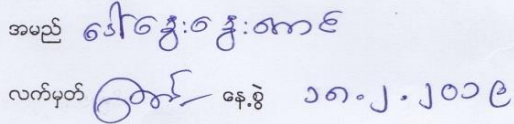 အမည် ဒေါ်နွေးနွေးအောင်
လက်မှတ် နေ့စွဲ ၁၈.၂.၂၀၁၉